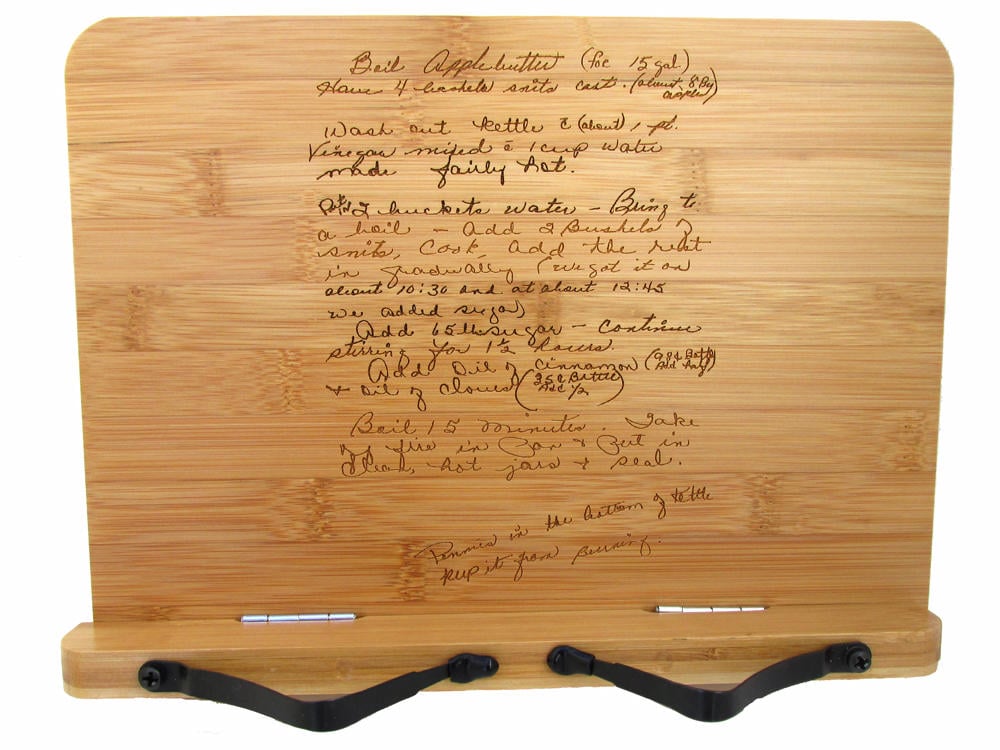 Boil Applebutter (for 15 gal)
Have 4 bushels snits cut. (about 8 Bu apples)
Wash out kettle c̄ (about) 1 pt.
Vinegar mixed c̄ 1 cup water
made fairly hot.
Put in 2 buckets water - Bring to
a boil - Add 2 Bushels of
snits, Cook, add the rest
in gradually (we got it on
about 10:30 and at about 12:45
we added sugar)
Add 65 lb sugar - continue
stirring for 1½ hours.
Add Oil of cinnamon (98¢ Bottle Add
& oil of cloves (35¢ Bottle Add 1/2)
Boil 15 minutes. Take
off fire in Pan & Put in
Clean, hot jars & seal.
Pennies in the bottom of kettle
keep it from burning.